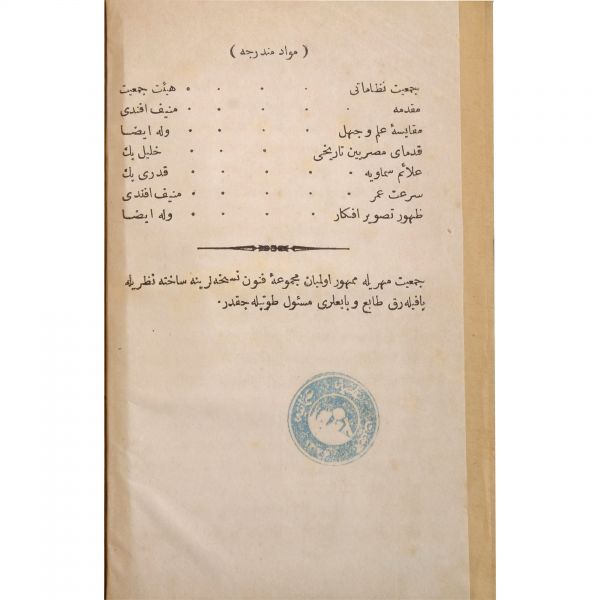 ( مواد مندرجه )
جمعیت نظاماتی . . . . هیئت جمعیت
مقدمه . . . . منیف افندی
مقایسهٔ علم و جهل . . . . وله ایضا
قدمای مصریین تاریخی . . . خلیل بك
علائم سماویه . . . . قدری بك
سرعت عمر . . . . منیف افندی
ظهور تصویر افکار . . . . وله ایضا
جمعیت مهریله ممهور اولمیان مجموعهٔ فنون نسخه لرینه ساخته نظریله
باقیله رق طابع و بایعلری مسئول طوتیله جقدر .